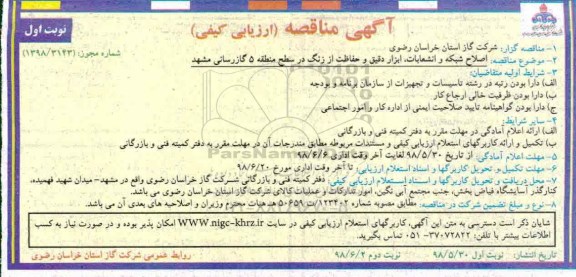 آگهی مناقصه (ارزیابی کیفی)
نوبت اول
شماره مجوز: (۱۳۹۸/۳۱۴۳)
۱- مناقصه گزار: شرکت گاز استان خراسان رضوی
۲- موضوع مناقصه: اصلاح شبکه و انشعابات، ابزار دقیق و حفاظت از زنگ در سطح منطقه ۵ گازرسانی مشهد
۳- شرایط اولیه متقاضیان:
الف) دارا بودن رتبه در رشته تاسیسات و تجهیزات از سازمان برنامه و بودجه
ب) دارا بودن ظرفیت خالی ارجاع کار
ج) دارا بودن گواهینامه تایید صلاحیت ایمنی از اداره کار و امور اجتماعی
۴- سایر شرایط:
الف) ارائه اعلام آمادگی در مهلت مقرر به دفتر کمیته فنی و بازرگانی
ب) تکمیل و ارائه کاربرگهای استعلام ارزیابی کیفی و مستندات مربوطه مطابق مندرجات آن در مهلت مقرر به دفتر کمیته فنی و بازرگانی
۵- مهلت اعلام آمادگی: از تاریخ ۹۸/۵/۳۰ لغایت آخر وقت اداری ۹۸/۶/۶
۶- مهلت تکمیل و تحویل کاربرگها و اسناد استعلام ارزیابی: تا آخر وقت اداری مورخ ۹۸/۶/۲۰
۷- محل دریافت و تحویل کاربرگها و اسناد استعلام ارزیابی کیفی: دفتر کمیته فنی و بازرگانی شرکت گاز خراسان رضوی واقع در مشهد- میدان شهید فهمیده، کنارگذر نمایشگاه فیاض بخش، جنب مجتمع آبی نگین، امور تدارکات و عملیات کالای شرکت گاز استان خراسان رضوی می باشد.
۸- نوع و مبلغ تضمین شرکت در مناقصه: مطابق مصوبه شماره ۱۲۳۴۰۲/ت ۵۰۶۵۹ هـ هیات محترم وزیران و اصلاحیه های بعدی آن می باشد.
شایان ذکر است دسترسی به متن این آگهی، کاربرگهای استعلام ارزیابی کیفی در سایت WWW.nigc-khrz.ir امکان پذیر بوده و در صورت نیاز به کسب اطلاعات بیشتر با تلفن: ۳۷۰۷۲۸۲۲-۰۵۱ تماس بگیرید.
تاریخ انتشار: نوبت اول ۹۸/۵/۳۰ نوبت دوم ۹۸/۶/۲ روابط عمومی شرکت گاز استان خراسان رضوی